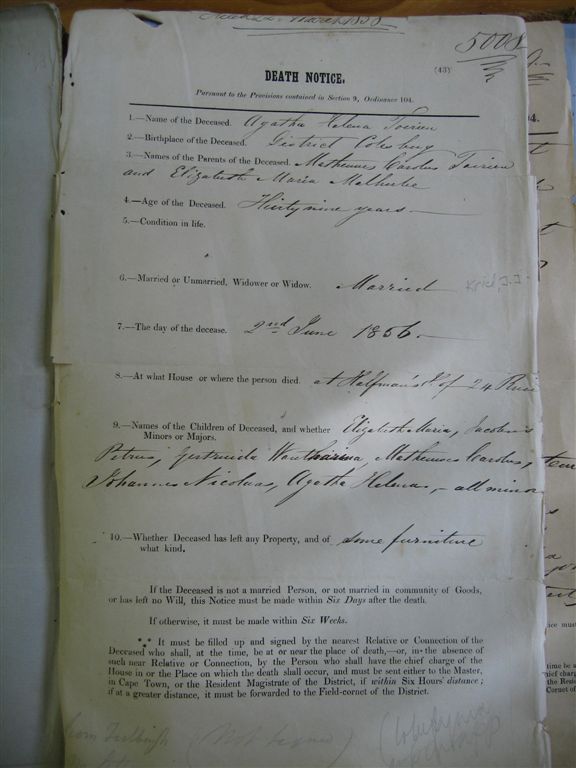 March 1858
5008
(43)
DEATH NOTICE.
Pursuant to the Provisions contained in Section 9, Ordinance 104.
1.—Name of the Deceased. Agatha Helena Joirien
2.—Birthplace of the Deceased. District Colesberg
3.—Names of the Parents of the Deceased. Matheuwes Carolus Joirien
and Elizabeth Maria Malherbe
4.—Age of the Deceased. Thirty nine years.—
5.—Condition in life.
6.—Married or Unmarried, Widower or Widow. Married
7.—The day of the decease. 2nd June 1856.—
8.—At what House or where the person died. at of 24 River
9.—Names of the Children of Deceased, and whether Elizabeth Maria, Jacobus
Minors or Majors.
Petrus, Gertruida Matheuwes Carolus,
Johannes Nicolaas, Agatha Helena, – all minor
10.—Whether Deceased has left any Property, and of some furniture
what kind.
If the Deceased is not a married Person, or not married in community of Goods,
or has left no Will, this Notice must be made within Six Days after the death.
If otherwise, it must be made within Six Weeks.
*** It must be filled up and signed by the nearest Relative or Connection of the
Deceased who shall, at the time, be at or near the place of death,—or, in the absence of
such near Relative or Connection, by the Person who shall have the chief charge of the
House in or the Place on which the death shall occur, and must be sent either to the Master,
in Cape Town, or the Resident Magistrate of the District, if within Six Hours' distance;
if at a greater distance, it must be forwarded to the Field-cornet of the District.
(Not signed)